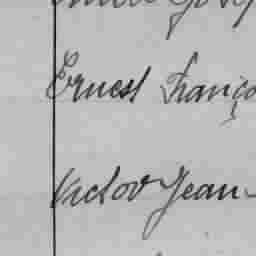 Ernest Franço
Victor Jean-